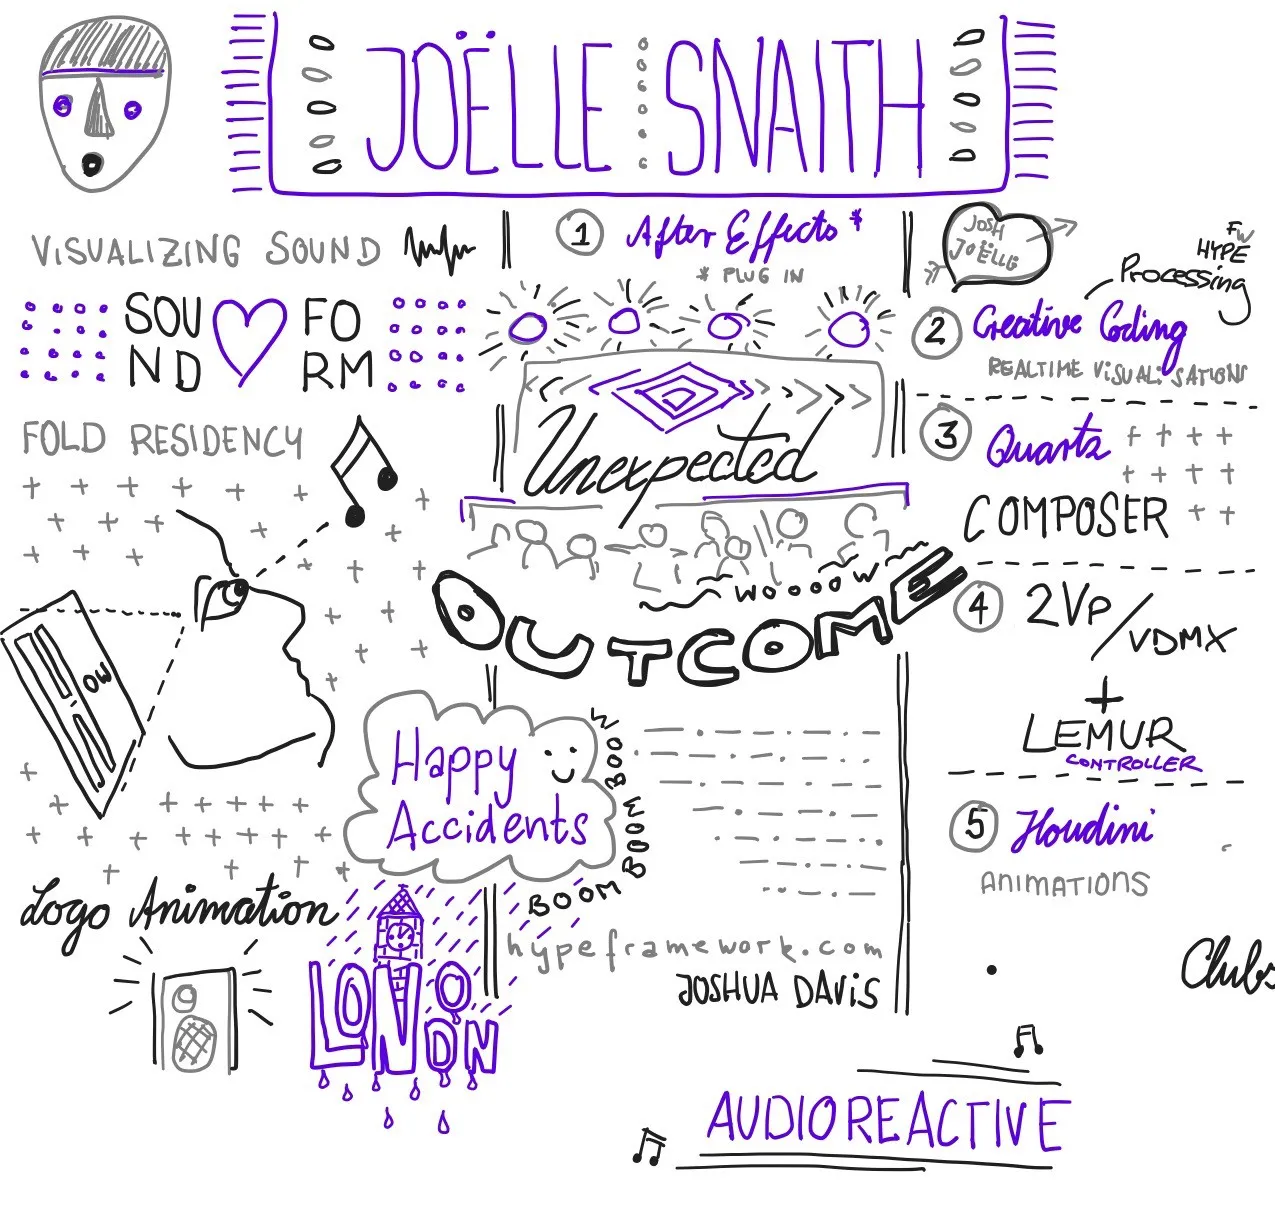 JOËLLE SNAITH
VISUALIZING SOUND
SOU
ND
FO
RM
FOLD RESIDENCY
OW
Logo Animation
LONDON
1 After Effects *
* PLUG IN
Unexpected
WOOOOW
OUTCOME
Happy
Accidents
BOOM BOOM BOOW
hypeframework.com
JOSHUA DAViS
JOSH
JOËLLE
FW
HYPE
Processing
2 Creative Coding
REALTIME ViSUALiSATIONS
3 Quartz
COMPOSER
4 2VP/VDMX
+
LEMUR
CONTROLLER
5 Houdini
ANIMATIONS
Clubs
AUDIOREACTIVE